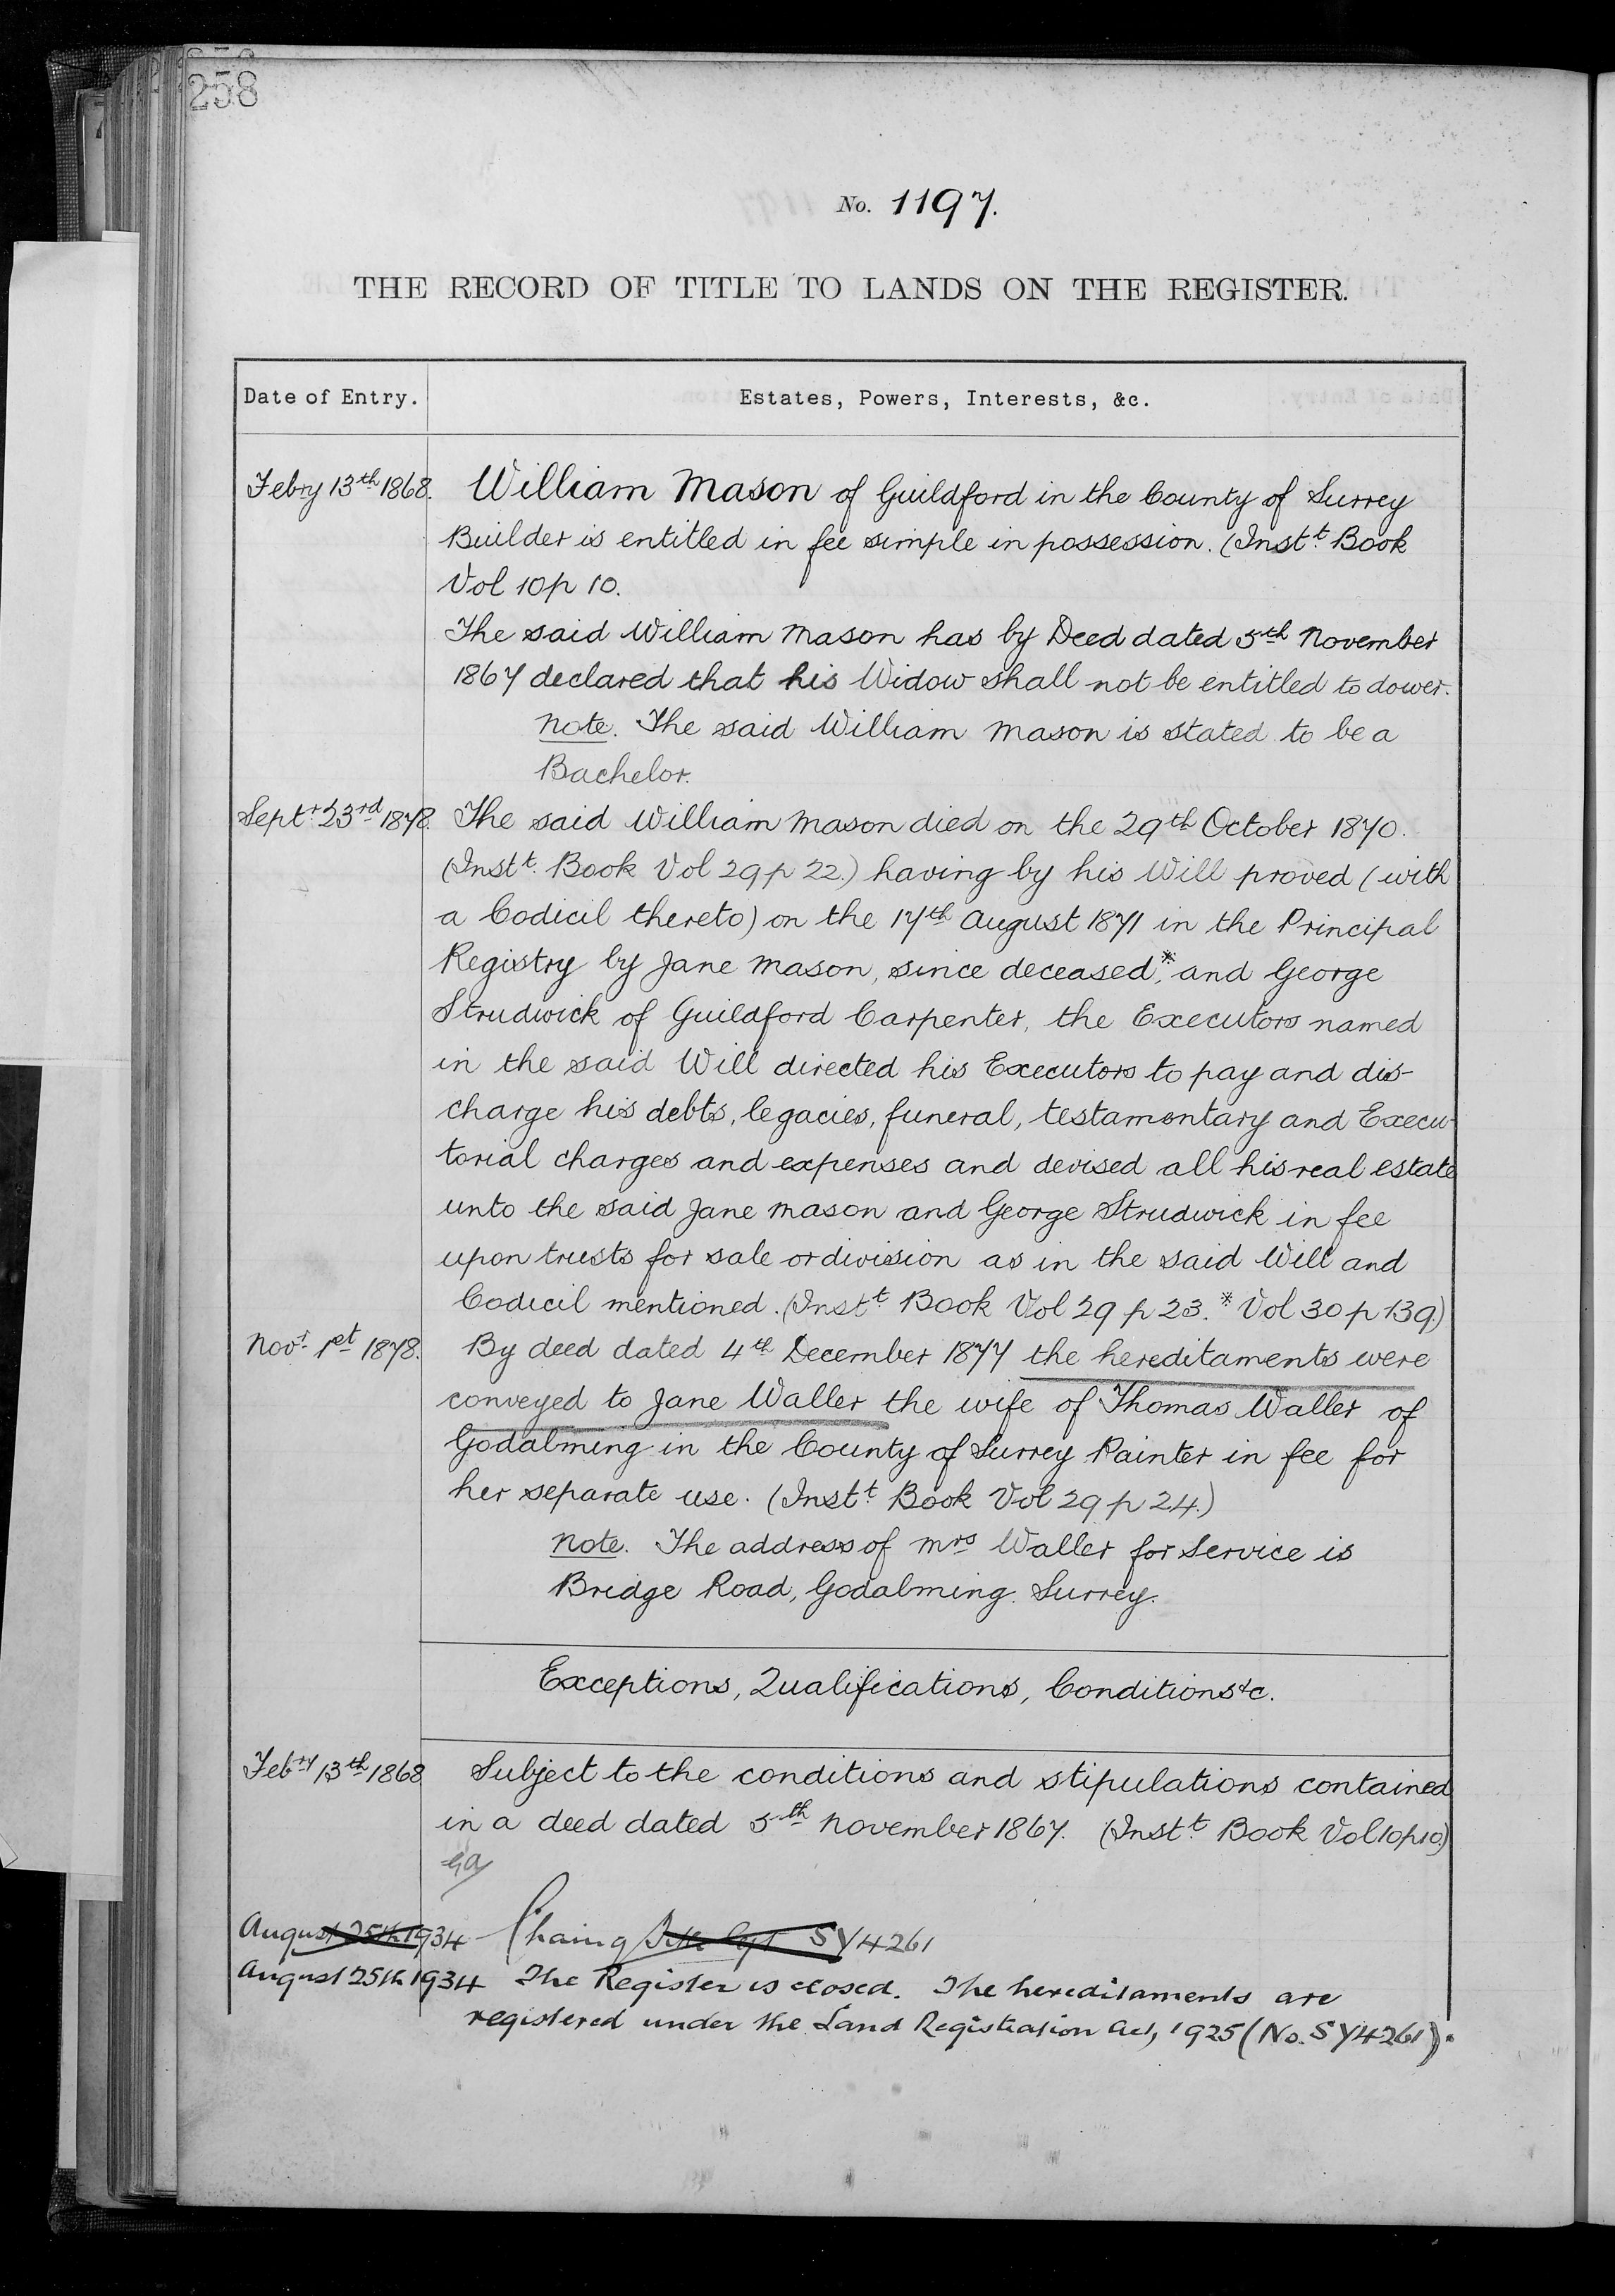 258
No. 1197.
THE RECORD OF TITLE TO LANDS ON THE REGISTER.
Date of Entry. Estates, Powers, Interests, &c.
Febry 13th 1868. William Mason of Guildford in the County of Surrey
Builder is entitled in fee simple in possession. (Instt. Book
Vol 10 p 10.
The said William Mason has by Deed dated 5th November
1867 declared that his Widow shall not be entitled to dower.
Note. The said William Mason is stated to be a
Bachelor.
Septr 23rd 1878. The said William Mason died on the 29th October 1870.
(Instt. Book Vol 29 p 22.) having by his Will proved (with
a Codicil thereto) on the 17th August 1871 in the Principal
Registry by Jane Mason, since deceased,* and George
Strudwick of Guildford Carpenter, the Executors named
in the said Will directed his Executors to pay and dis-
charge his debts, legacies, funeral, testamentary and Execu-
torial charges and expenses and devised all his real estate
unto the said Jane Mason and George Strudwick in fee
upon trusts for sale or division as in the said Will and
Codicil mentioned. (Instt. Book Vol 29 p 23. * Vol 30 p 139.)
Novr 1st 1878. By deed dated 4th December 1877 the hereditaments were
conveyed to Jane Waller the wife of Thomas Waller of
Godalming in the County of Surrey Painter in fee for
her separate use. (Instt Book Vol 29 p 24.)
Note. The address of Mrs Waller for Service is
Bridge Road, Godalming. Surrey.
Exceptions, Qualifications, Conditions &c.
Febry 13th 1868 Subject to the conditions and stipulations contained
in a deed dated 5th November 1867. (Instt. Book Vol 10 p 10.)
August 25th 1934 SY4261
August 25th 1934 The Register is closed. The hereditaments are
registered under the Land Registration Act, 1925 (No. SY4261).